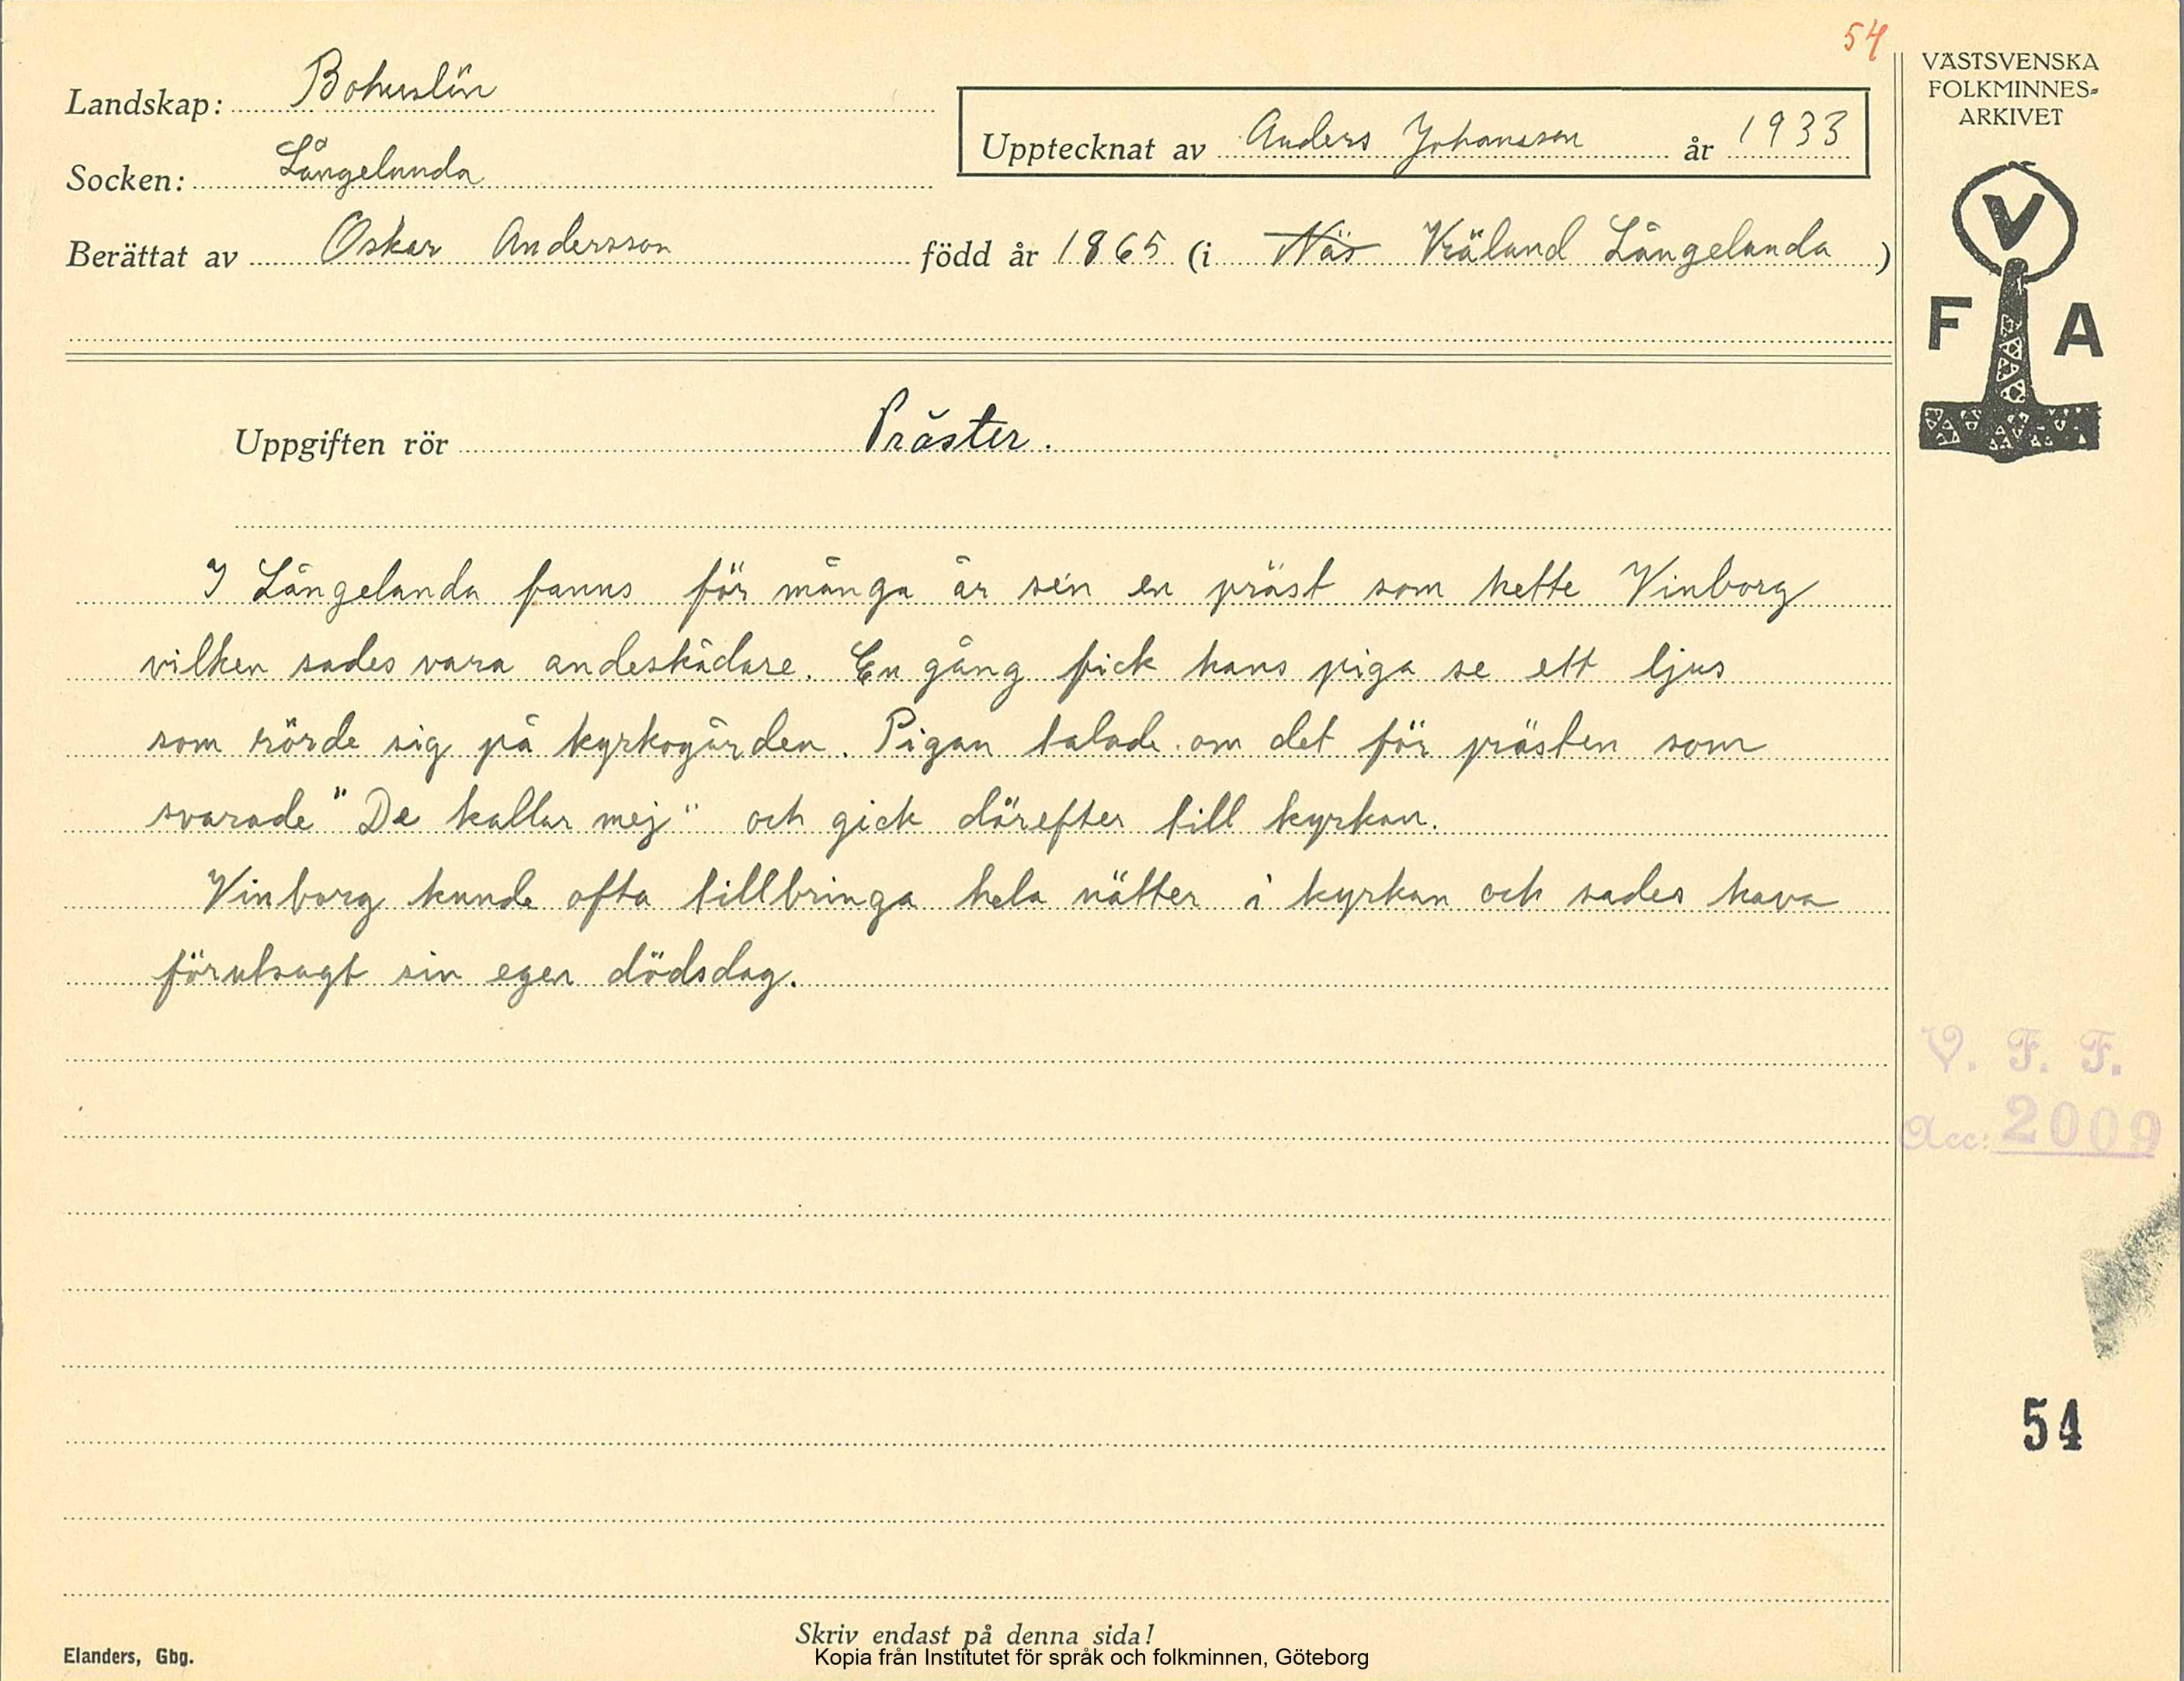 54
VÄSTSVENSKA
FOLKMINNES-
ARKIVET
Landskap: Bohuslän
Upptecknat av Anders Johansson år 1933
Socken: Långelanda
Berättat av Oskar Andersson född år 1865 (i Näs Vräland Långelanda)
V
F A
Uppgiften rör Präster.
I Långelanda fanns för många år sén en präst som hette Vinborg
vilken sades vara andeskådare. En gång fick hans piga se ett ljus
som rörde sig på kyrkogården. Pigan talade om det för prästen som
svarade "De kallar mej" och gick därefter till kyrkan.
Vinborg kunde ofta tillbringa hela nätter i kyrkan och sades hava
förutsagt sin egen dödsdag.
V. F. F.
Acc: 2009
54
Skriv endast på denna sida!
Elanders, Gbg.
Kopia från Institutet för språk och folkminnen, Göteborg